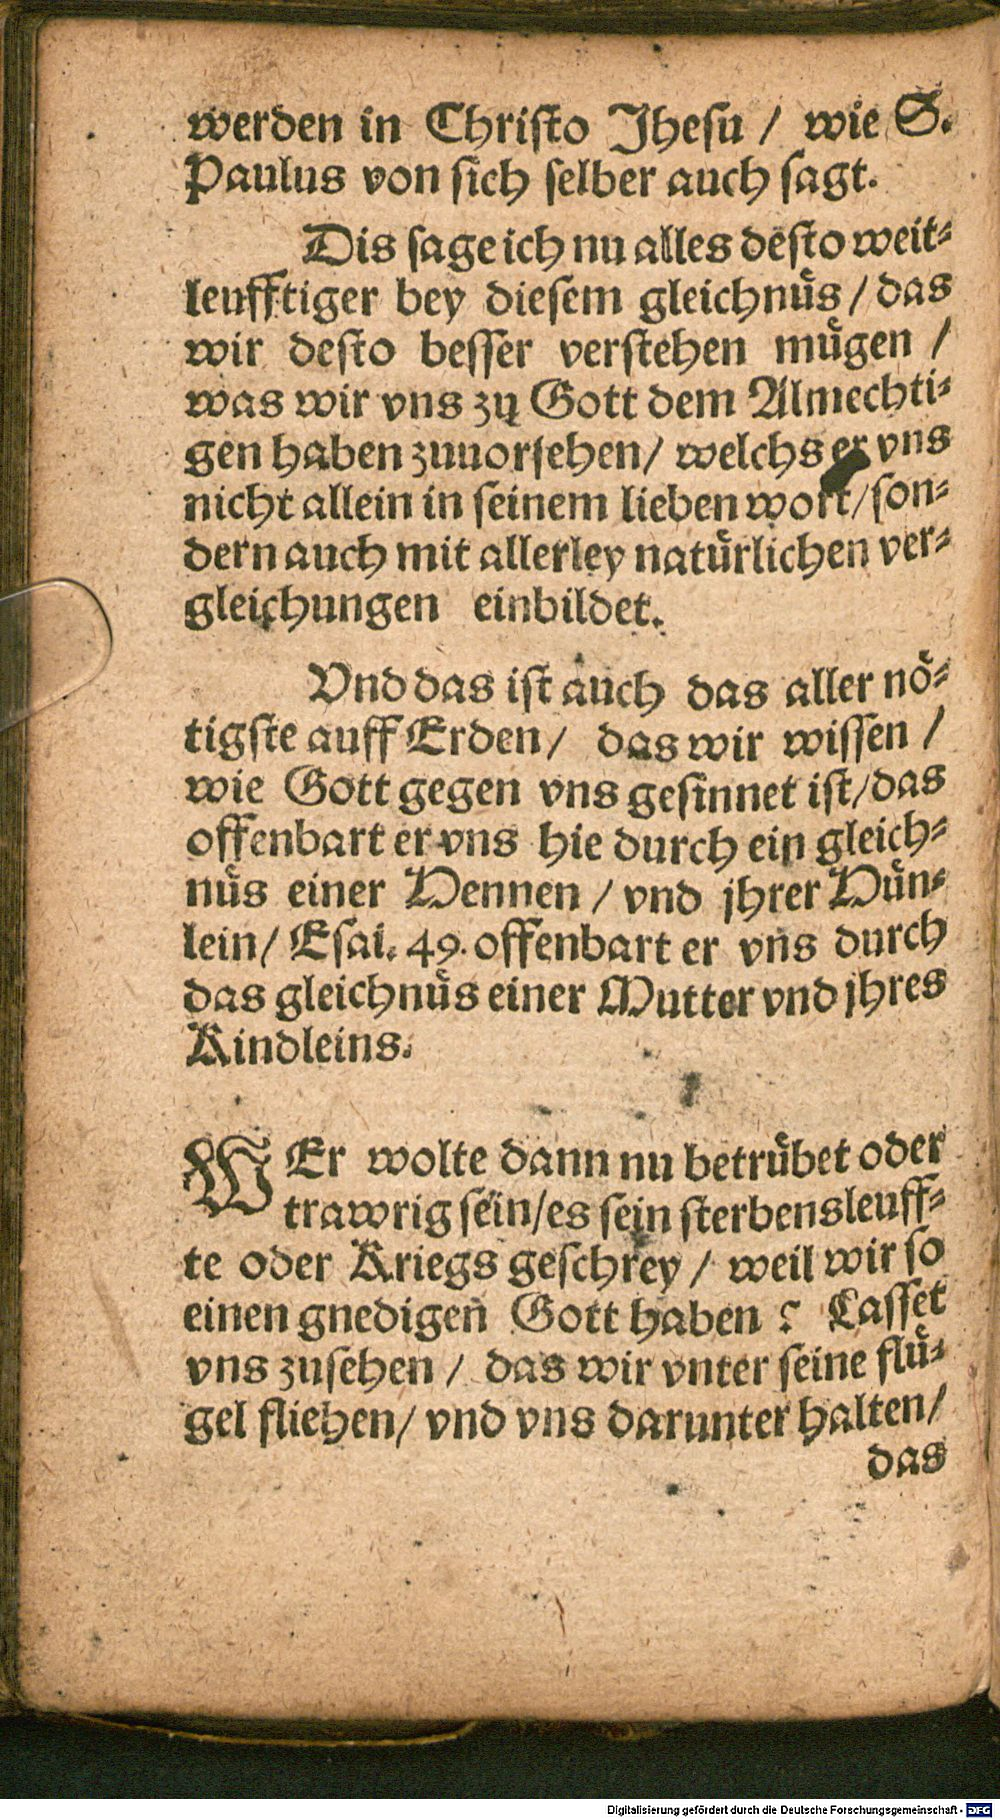 werden in Christo Jhesu / wie S.
Paulus von sich selber auch sagt.
Dis sage ich nu alles desto weit⸗
leufftiger bey diesem gleichnuͤs / das
wir desto besser verstehen muͤgen /
was wir vns zu Gott dem Almechti⸗
gen haben zuuorsehen / welchs er vns
nicht allein in seinem lieben wort / son⸗
dern auch mit allerley natuͤrlichen ver⸗
gleichungen einbildet.
Vnd das ist auch das aller noͤ⸗
tigste auff Erden / das wir wissen /
wie Gott gegen vns gesinnet ist / das
offenbart er vns hie durch ein gleich⸗
nuͤs einer Hennen / vnd jhrer Huͤn⸗
lein / Esai. 49. offenbart er vns durch
das gleichnuͤs einer Mutter vnd jhres
Kindleins.
WEr wolte dann nu betruͤbet oder
trawrig sein / es sein sterbensleuff⸗
te oder Kriegs geschrey / weil wir so
einen gnedigen Gott haben ? Lasset
vns zusehen / das wir vnter seine fluͤ⸗
gel fliehen / vnd vns darunter halten /
das
Digitalisierung gefördert durch die Deutsche Forschungsgemeinschaft - DFG